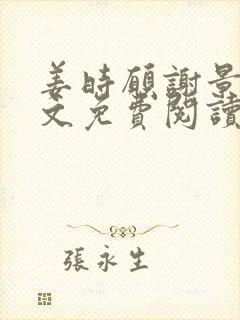 姜時願謝景
文免費閱讀
張永生